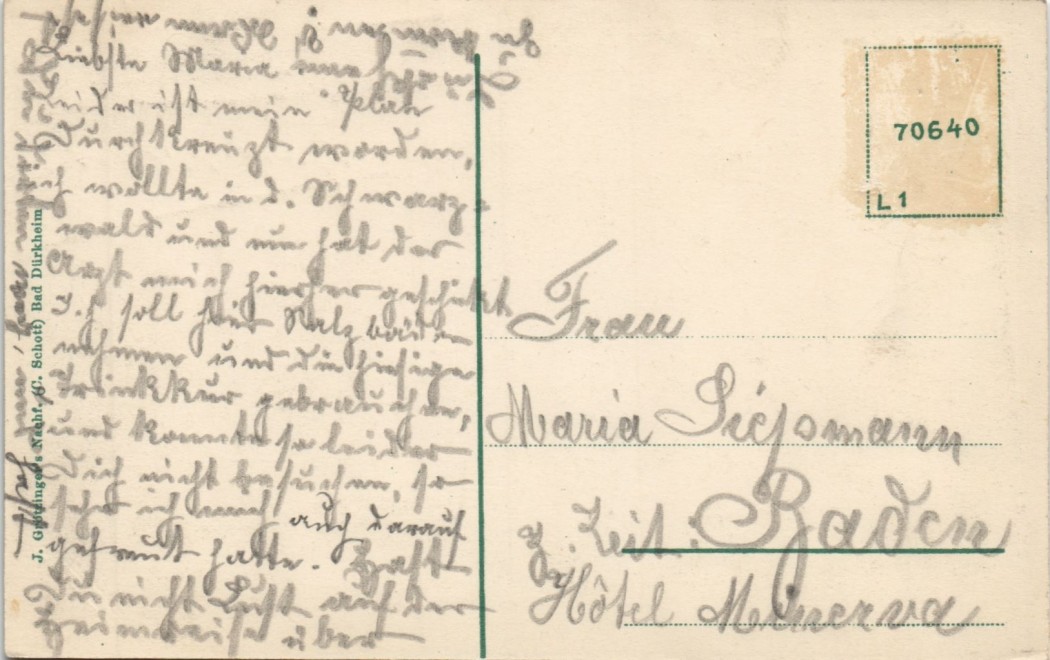 Liebste Maria
leider ist mein Plan
durchkreuzt worden,
ich wollte in d. Schwarz-
wald und nun hat der
Arzt mich hierher geschickt
Ich soll hier Salzbäder
nehmen und die hiesige
Trinkkur gebrauchen,
und konnte so leider
Dich nicht besuchen, so
sehr ich mich auch darauf
gefreut hatte. Hast
Du nicht Lust auf der
Heimreise über
J. Grötzinger's Nachf. (C. Schott) Bad Dürkheim
70640
L 1
Frau
Maria
z. Zeit: Baden
Hôtel Minerva